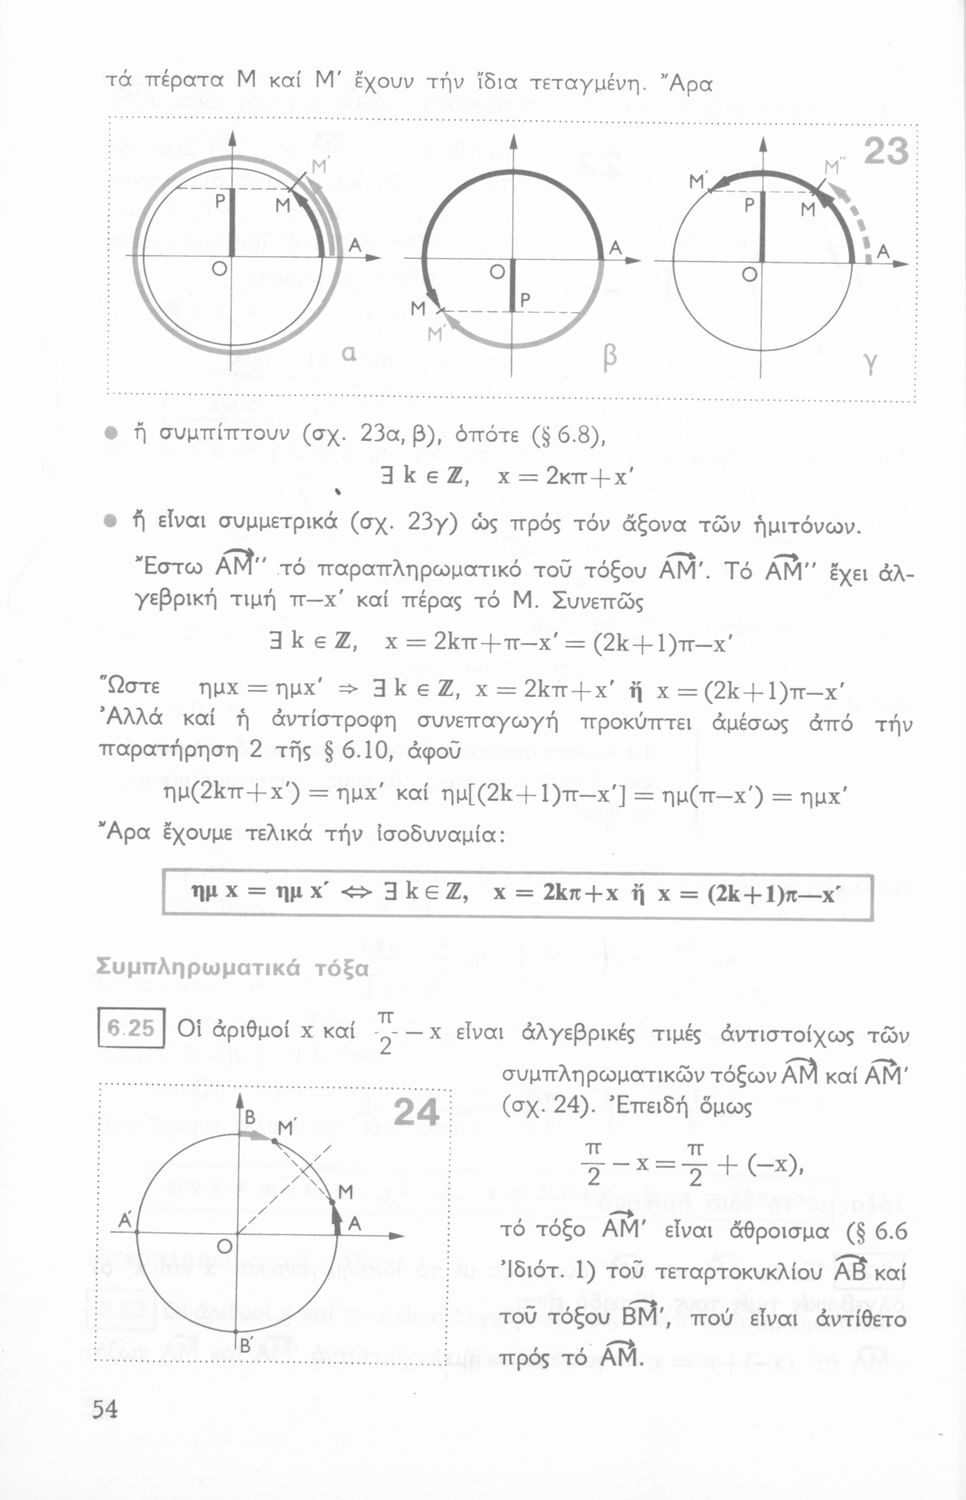 τά πέρατα Μ καί Μ′ ἔχουν τήν ἴδια τεταγμένη. Ἄρα
23
Μ′ Ρ Μ Α Ο α
Α Ο Ρ Μ Μ′ β
Μ′ Μ″ Ρ Μ Α Ο γ
● ἤ συμπίπτουν (σχ. 23α, β), ὁπότε (§ 6.8),
∃ k ∈ ℤ, x = 2κπ+x′
● ἤ εἶναι συμμετρικά (σχ. 23γ) ὡς πρός τόν ἄξονα τῶν ἡμιτόνων.
Ἔστω ΑΜ″ τό παραπληρωματικό τοῦ τόξου ΑΜ′. Τό ΑΜ″ ἔχει ἀλ-
γεβρική τιμή π—x′ καί πέρας τό Μ. Συνεπῶς
∃ k ∈ ℤ, x = 2kπ+π—x′ = (2k+1)π—x′
Ὥστε ημx = ημx′ ⇒ ∃ k ∈ ℤ, x = 2kπ+x′ ἤ x = (2k+1)π—x′
Ἀλλά καί ἡ ἀντίστροφη συνεπαγωγή προκύπτει ἀμέσως ἀπό τήν
παρατήρηση 2 τῆς § 6.10, ἀφοῦ
ημ(2kπ+x′) = ημx′ καί ημ[(2k+1)π—x′] = ημ(π—x′) = ημx′
Ἄρα ἔχουμε τελικά τήν ἰσοδυναμία:
ημ x = ημ x′ ⇔ ∃ k ∈ ℤ, x = 2kπ+x ἤ x = (2k+1)π—x′
Συμπληρωματικά τόξα
6.25 Οἱ ἀριθμοί x καί π/2 — x εἶναι ἀλγεβρικές τιμές ἀντιστοίχως τῶν
συμπληρωματικῶν τόξων ΑΜ καί ΑΜ′
(σχ. 24). Ἐπειδή ὅμως
π/2 — x = π/2 + (—x),
τό τόξο ΑΜ′ εἶναι ἄθροισμα (§ 6.6
Ἰδιότ. 1) τοῦ τεταρτοκυκλίου ΑΒ καί
τοῦ τόξου ΒΜ′, πού εἶναι ἀντίθετο
πρός τό ΑΜ.
24
Β Μ′
Μ
Α′ Α
Ο
Β′
54